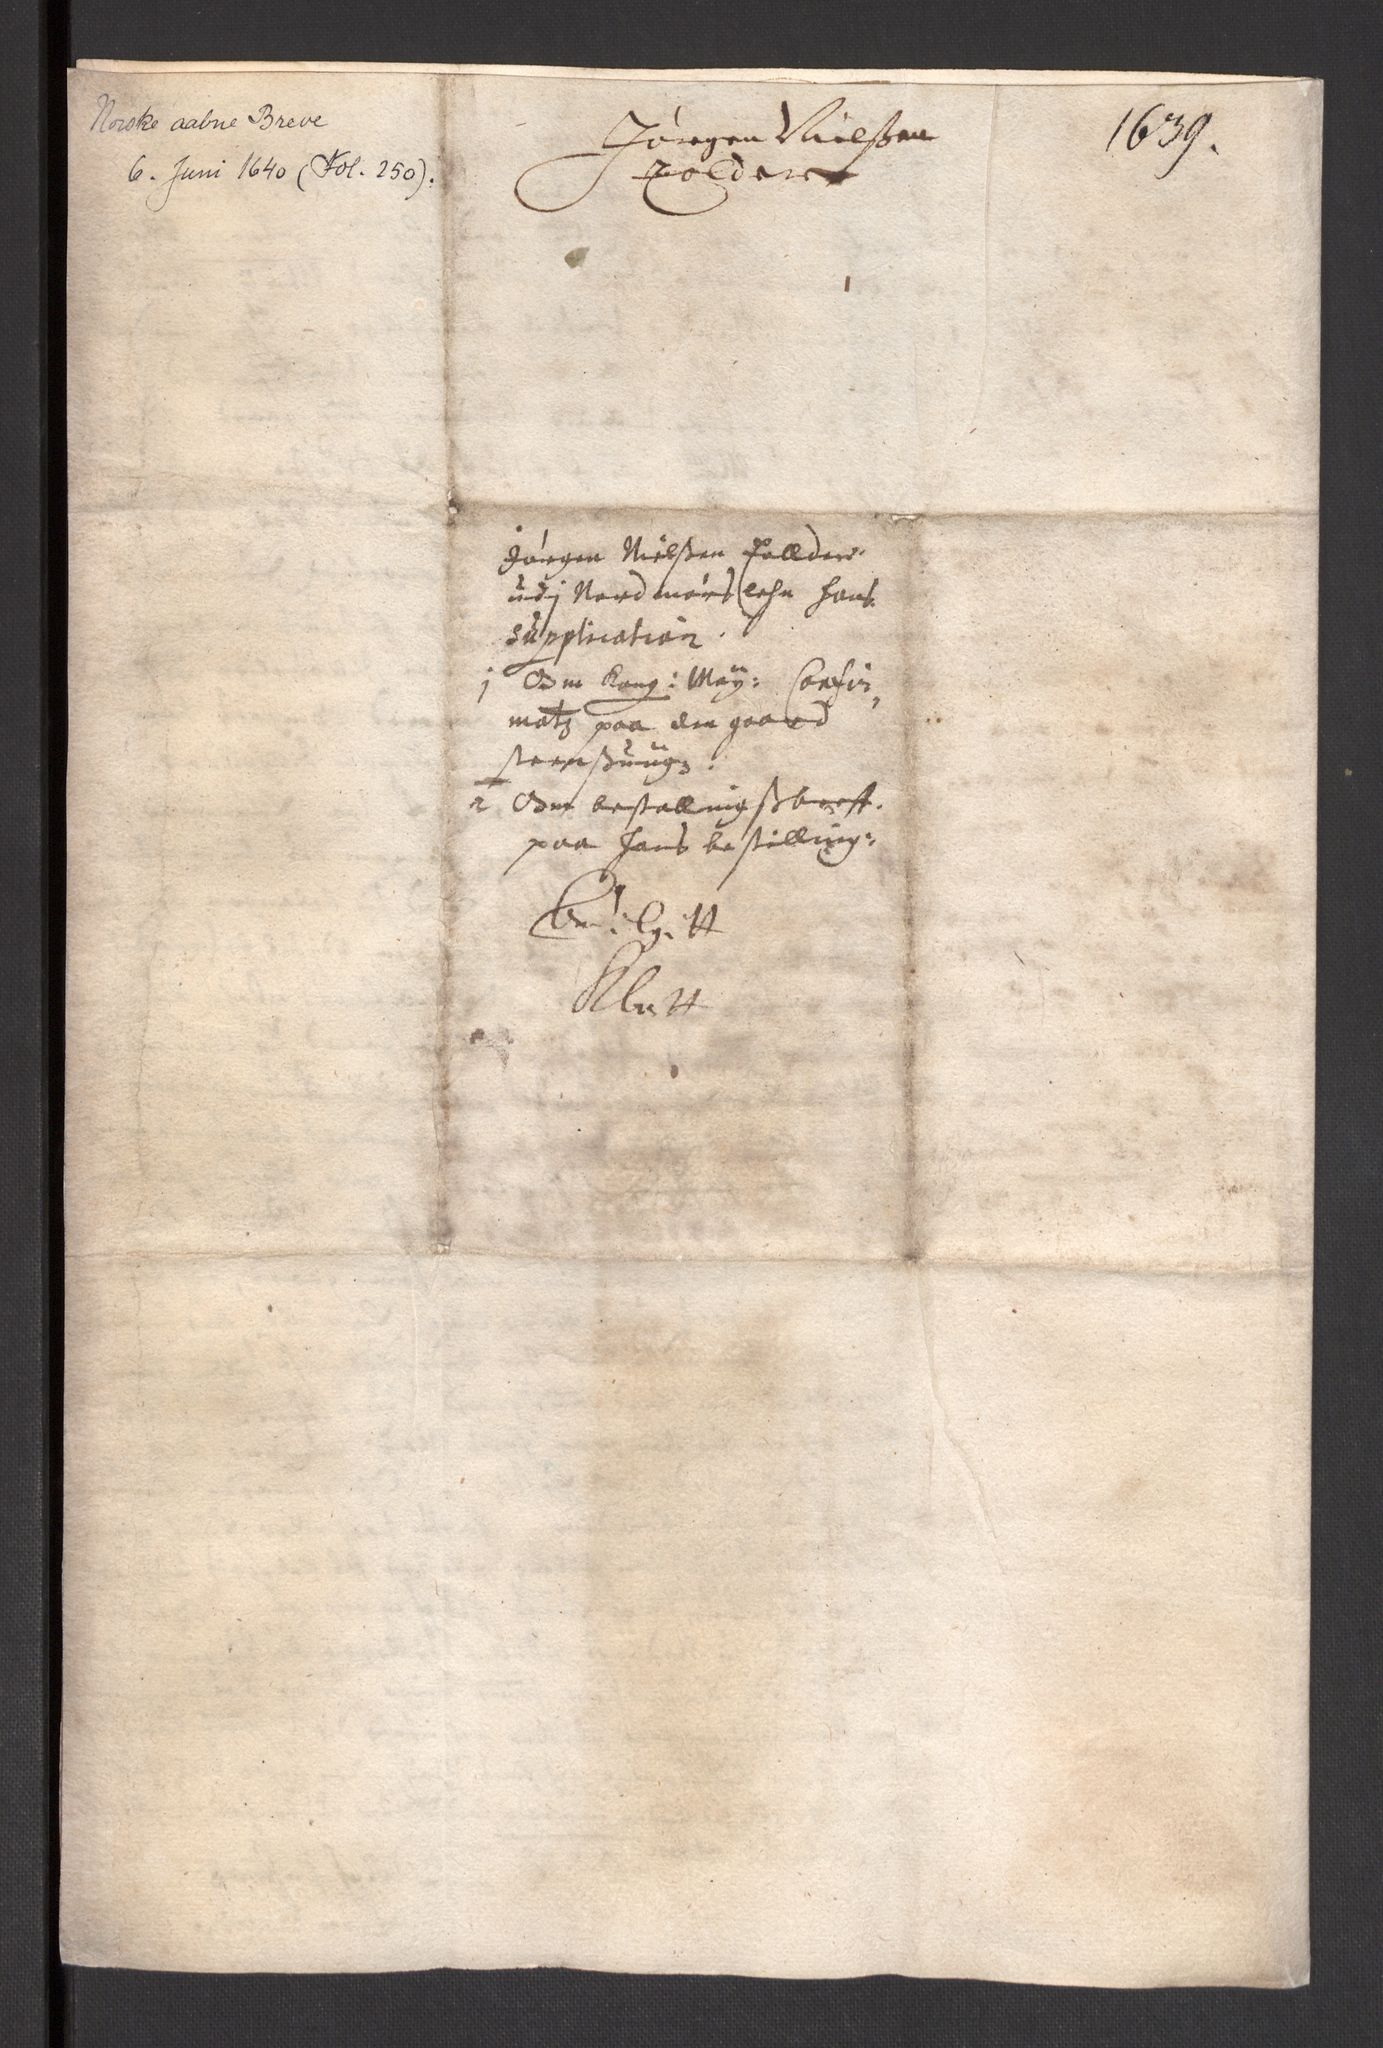 Norske aabne Breve
6. Juni 1640 (Fol. 250).
Jörgen Nielßen
Tolder
1639.
Jörgen Nielßen Tollder
udj Nordmørs lehn hans
Supplication.
1 Om Kong: May: Confir,
matz paa den gaard
2 Om bestallingßbreff
paa hans bestilling: